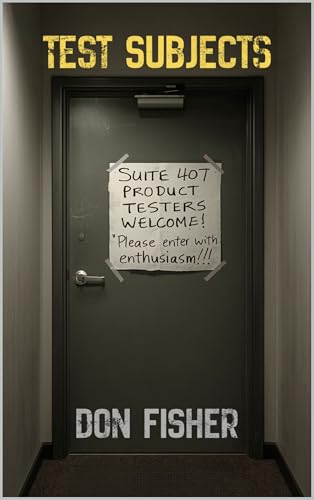 TEST SUBJECTS
SUITE 407
PRODUCT
TESTERS
WELCOME!
"Please enter with
enthusiasm!!!
DON FISHER